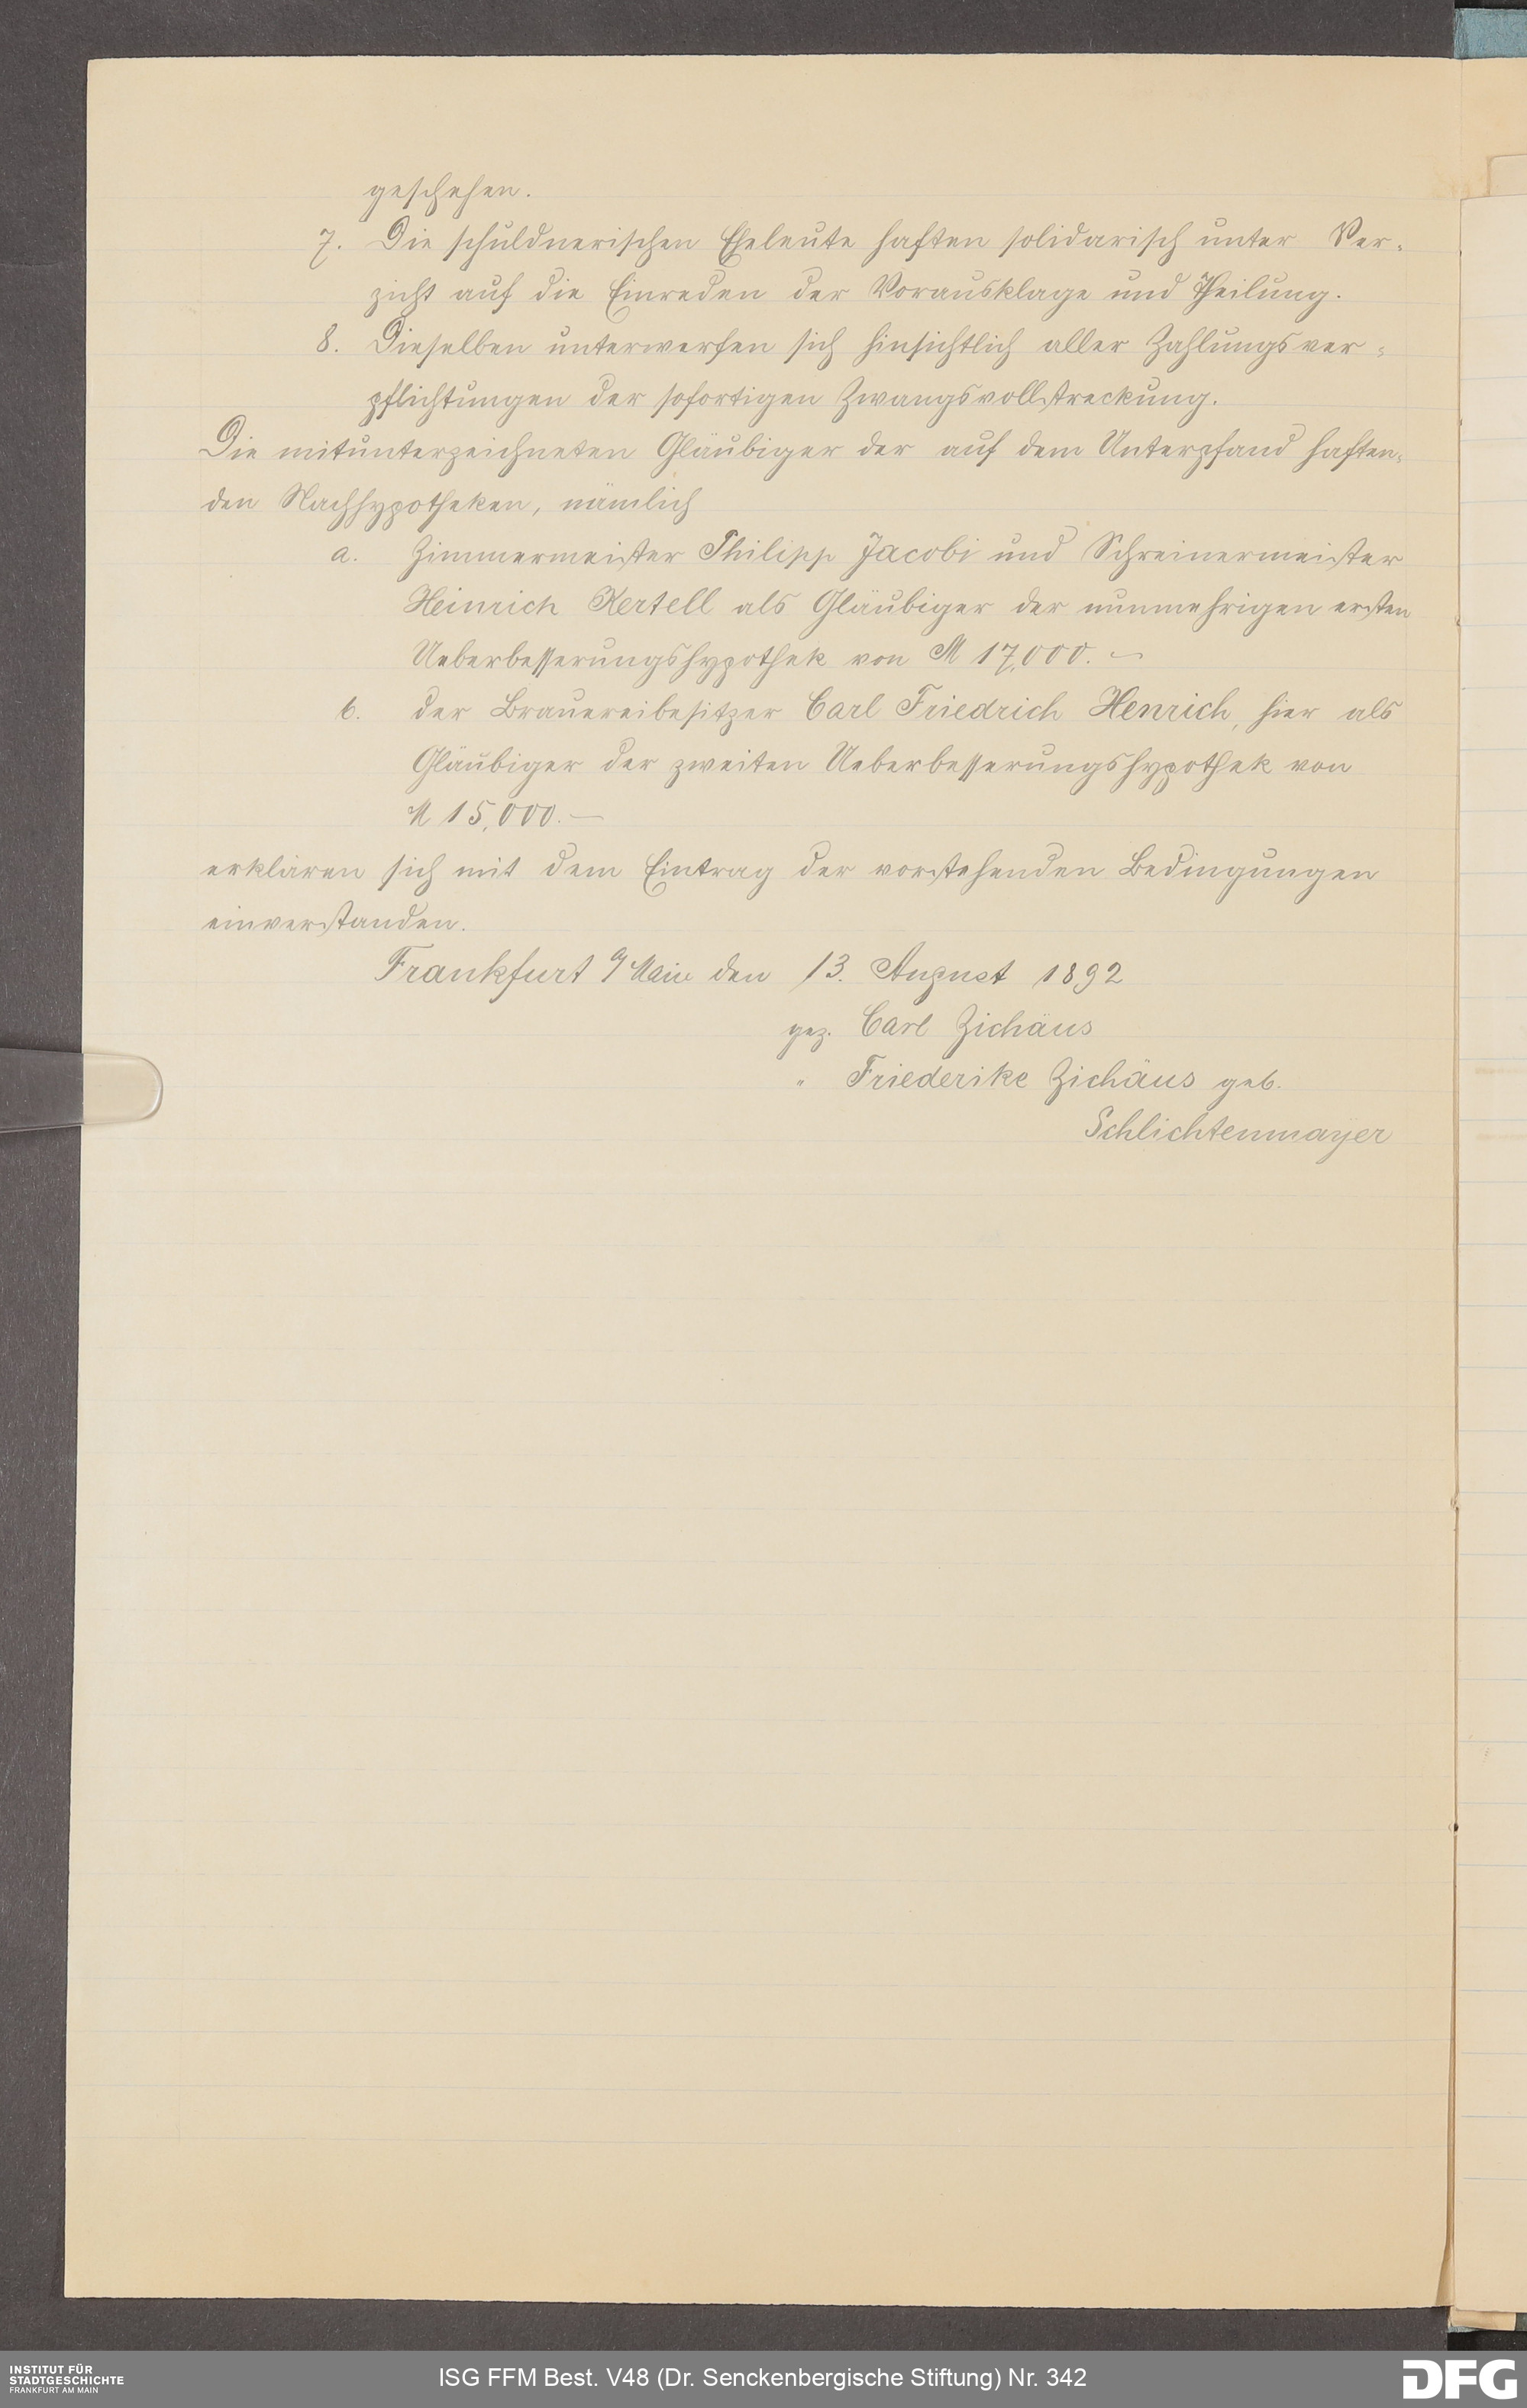 geschehen.
7. Die schuldnerischen Eheleute haften solidarisch unter Ver-
zicht auf die Einreden der Vorausklage und Theilung.
8. Dieselben unterwerfen sich hinsichtlich aller Zahlungsver-
pflichtungen der sofortigen Zwangsvollstreckung.
Die mitunterzeichneten Gläubiger der auf dem Unterpfand haften-
den Nachhypotheken, nämlich
a. Zimmermeister Philipp Jacobi und Schreinermeister
Heinrich Kertell als Gläubiger der nunmehrigen ersten
Ueberbesserungshypothek von M 17,000.–
b. der Brauereibesitzer Carl Friedrich Henrich, hier als
Gläubiger der zweiten Ueberbesserungshypothek von
M 15,000.–
erklären sich mit dem Eintrag der vorstehenden Bedingungen
einverstanden.
Frankfurt a/Main den 13. August 1892
gez. Carl Zichäus
" Friederike Zichäus geb.
Schlichtenmayer
INSTITUT FÜR
STADTGESCHICHTE
FRANKFURT AM MAIN
ISG FFM Best. V48 (Dr. Senckenbergische Stiftung) Nr. 342
DFG